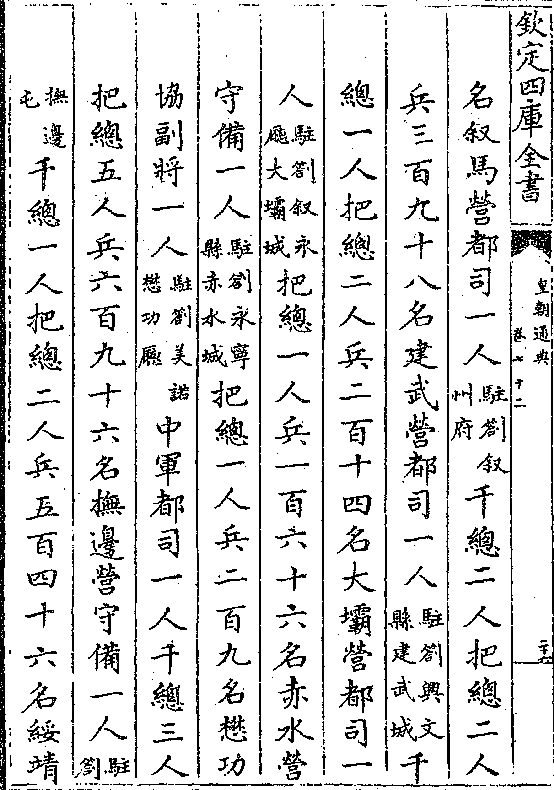 欽定四庫全書
皇朝通典
卷七十二
名叙馬營都司一人駐劄叙州府千總二人把總二人
兵三百九十八名建武營都司一人駐劄興文縣建武城千
總一人把總二人兵二百十四名大壩營都司一
人駐劄叙永廳大壩城把總一人兵一百六十六名赤水營
守備一人駐劄永寧縣赤水城把總一人兵二百九名懋功
協副將一人駐劄美諾懋功廳中軍都司一人千總三人
把總五人兵六百九十六名撫邊營守備一人駐劄
撫邊屯千總一人把總二人兵五百四十六名綏靖